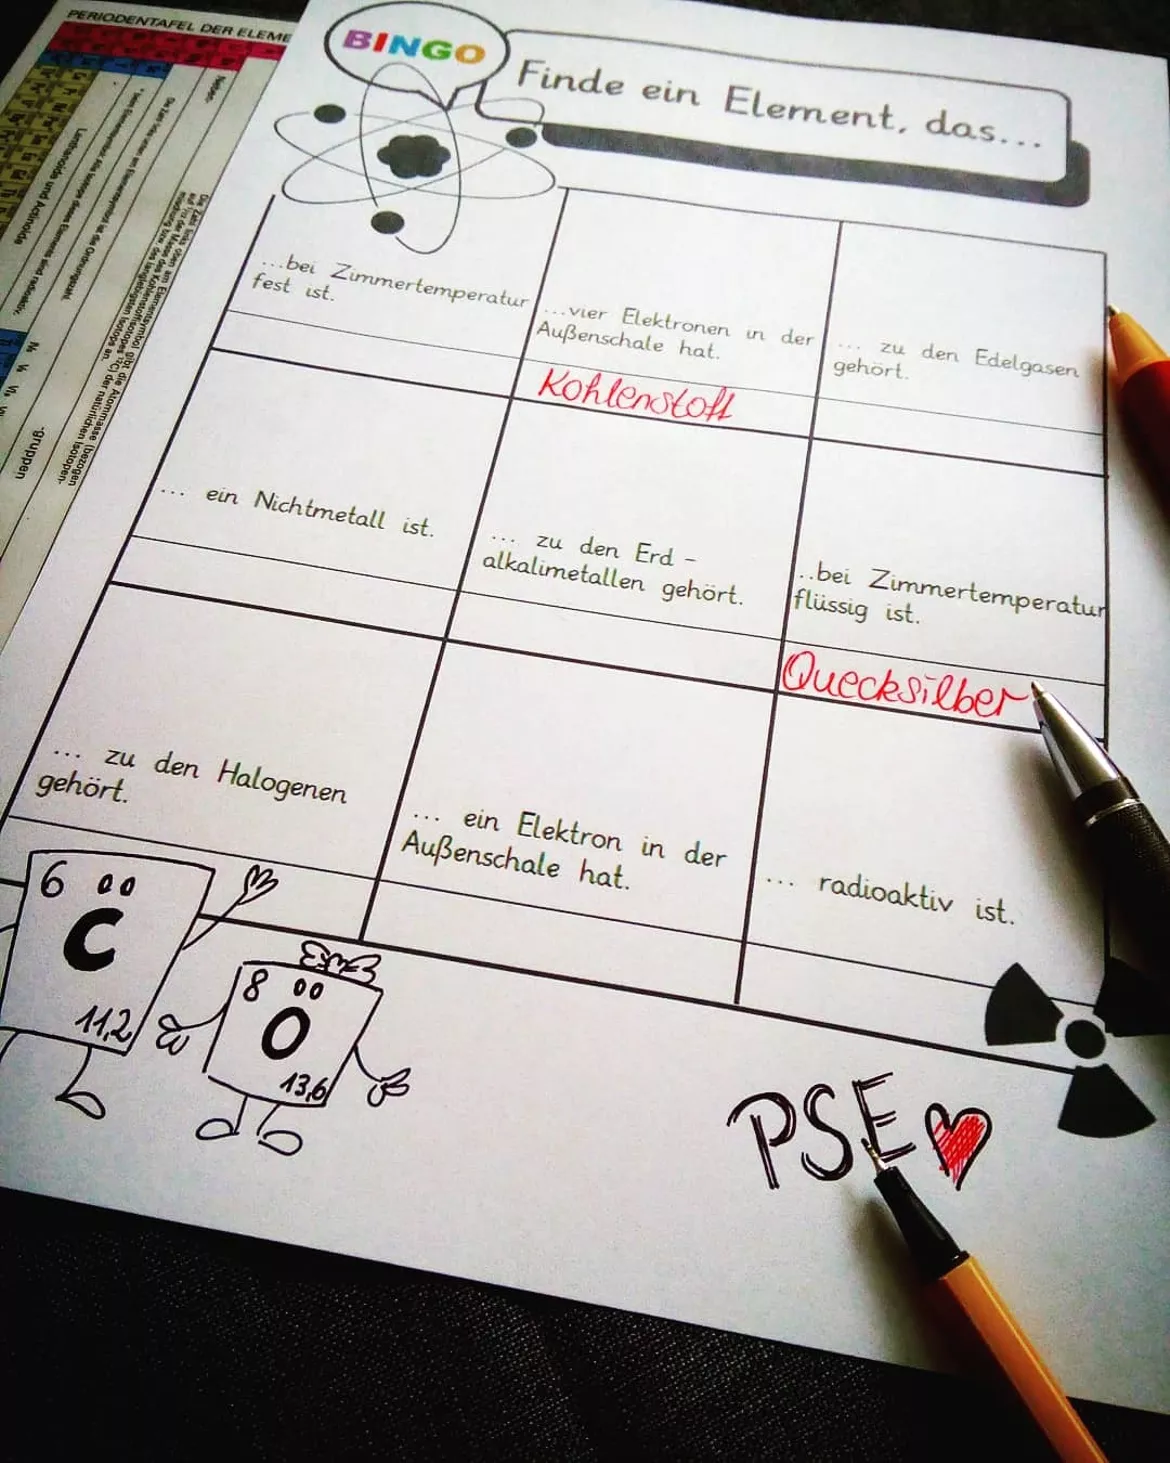 PERIODENTAFEL DER ELEME
BINGO
Finde ein Element, das...
...bei Zimmertemperatur
fest ist.
...vier Elektronen in der
Außenschale hat.
Kohlenstoff
... zu den Edelgasen
gehört.
... ein Nichtmetall ist.
... zu den Erd-
alkalimetallen gehört.
..bei Zimmertemperatur
flüssig ist.
Quecksilber
... zu den Halogenen
gehört.
... ein Elektron in der
Außenschale hat.
... radioaktiv ist.
6
C
11,2
8
O
13,6
PSE
Lanthanoide und Actinoide
-gruppen